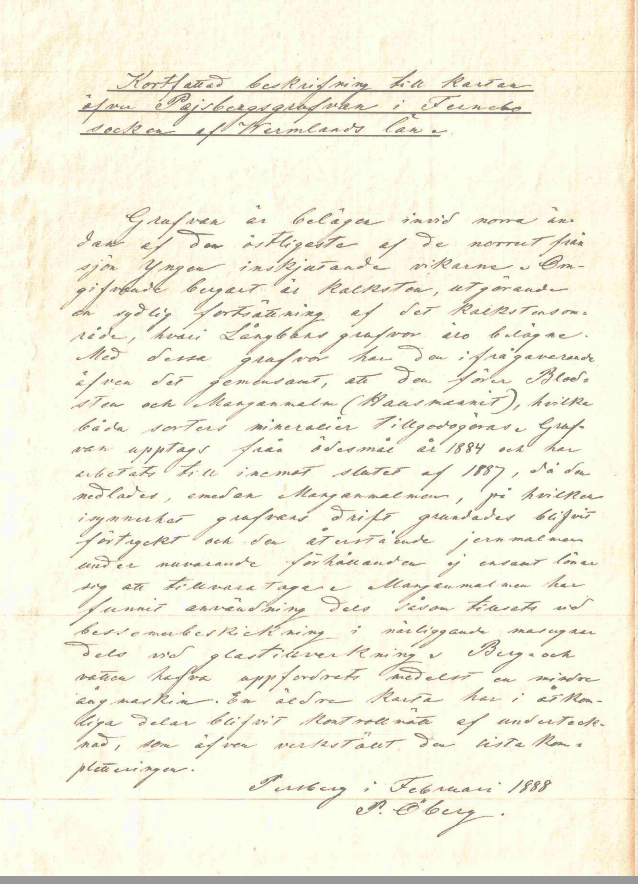 Kortfattad beskrifning till kartan
öfver Pajsbergsgrufvan i Fernebo
socken af Wermlands län.
Grufvan är belägen invid norra än-
dan af den östligaste af de norrut från
sjön Yngen inskjutande vikarne. Om-
gifvande bergart är kalksten, utgörande
en sydlig fortsättning af det kalkstensom-
råde, hvari Långbans grufvor äro belägne.
Med dessa grufvor har den ifrågavarande
äfven det gemensamt, att den förer Blod-
sten och Manganmalm (Hausmannit), hvilka
båda sorters mineralier tillgodogöras. Gruf-
van upptogs från ödesmål år 1884 och har
arbetats till inemot slutet af 1887, då den
nedlades, emedan Manganmalmen, på hvilken
isynnerhet grufvans drift grundades blifvit
förtryckt och den återstående jernmalmen
under nuvarande förhållanden ej ensamt lönar
sig att tillvarataga. Manganmalmen har
funnit användning dels såsom tillsats vid
bessemerbeskickning i närliggande masugnar
dels vid glastillverkning. Berg och
vatten hafva uppfordrats medelst en mindre
ångmaskin. En äldre karta har i åtkom-
liga delar blifvit kontrollmätt af underteck-
nad, som äfven verkställt den sista kom-
pletteringen.
Persberg i Februari 1888
P. Öberg.